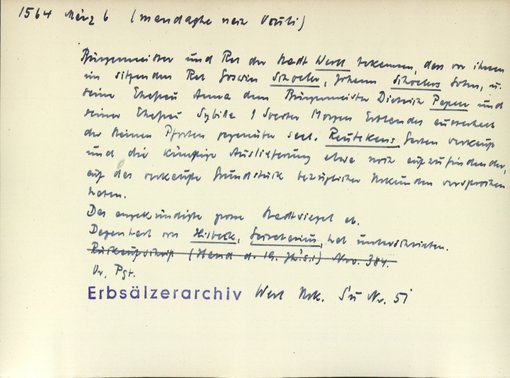 1564 März 6 (mendaghe neist Oculi)
Bürgermeister und Rat der Stadt Werl bekennen, dass vor ihnen
im sitzenden Rat Goswin Schoeler, Johanns Schoelers Sohn, u.
seine Ehefrau Anna dem Bürgermeister Dietrich Papen und
seiner Ehefrau Sybille 1 Soester Morgen Erblandes ausserhalb
der kleinen Pforten gegenüber seel. Reutekens Garten verkauft
und die künftige Auslieferung etwa noch aufzufindender,
auf das verkaufte Grundstück bezüglicher Urkunden versprochen
haben.
Das angekündigte grosse Stadtsiegel ab.
Degenhart von Hisbeck, Secretarius, hat unterschrieben.
Rückaufschrift (Hand d. 19. Jh.s.) Nro. 384.
Or. Pgt.
Erbsälzerarchiv Werl Urk. Sü Nr. 51